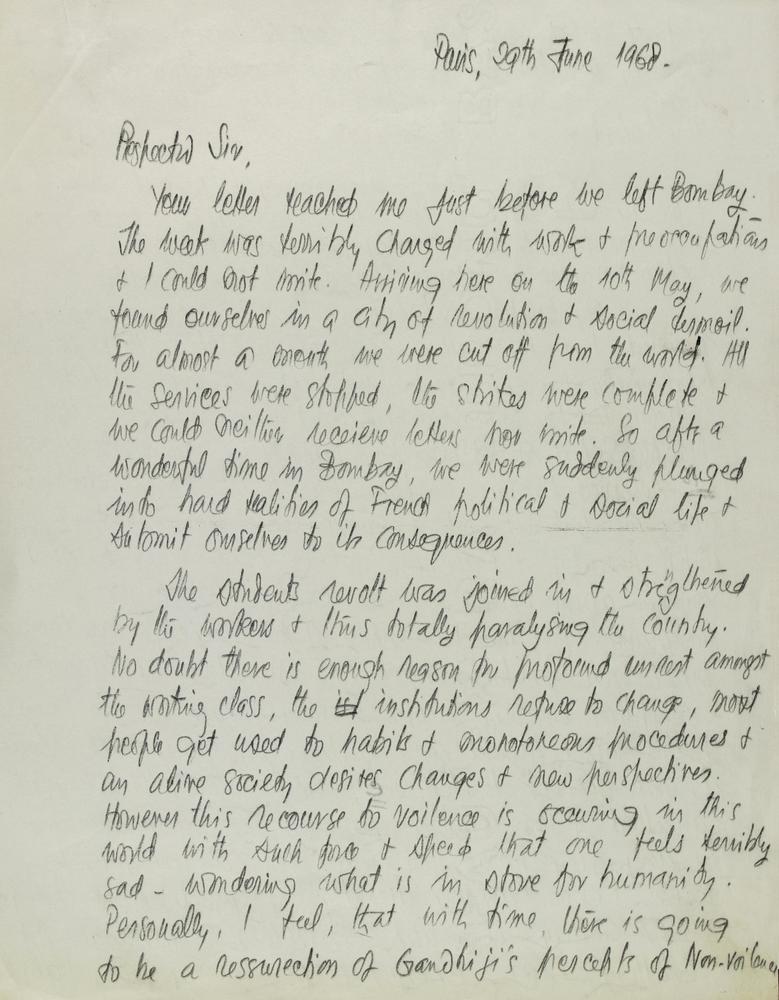 Paris, 29th June 1968.
Respected Sir,
Your letter reached me just before we left Bombay.
The week was terribly charged with work & preoccupations
& I could not write. Arriving here on the 10th May, we
found ourselves in a city of revolution & social turmoil.
For almost a month we were cut off from the world. All
the services were stopped, the strikes were complete &
we could neither receieve letters nor write. So after a
wonderful time in Bombay, we were suddenly plunged
into hard realities of French political & social life &
submit ourselves to its consequences.
The students revolt was joined in & strengthened
by the workers & thus totally paralysing the country.
No doubt there is enough reason for profound unrest amongst
the working class, the institutions refuse to change, most
people get used to habits & monotoneous procedures &
an alive society desires changes & new perspectives.
However this recourse to voilence is occuring in this
world with such force & speed that one feels terribly
sad - wondering what is in store for humanity.
Personally, I feel, that with time, there is going
to be a ressurection of Gandhiji's percepts of Non-voilence